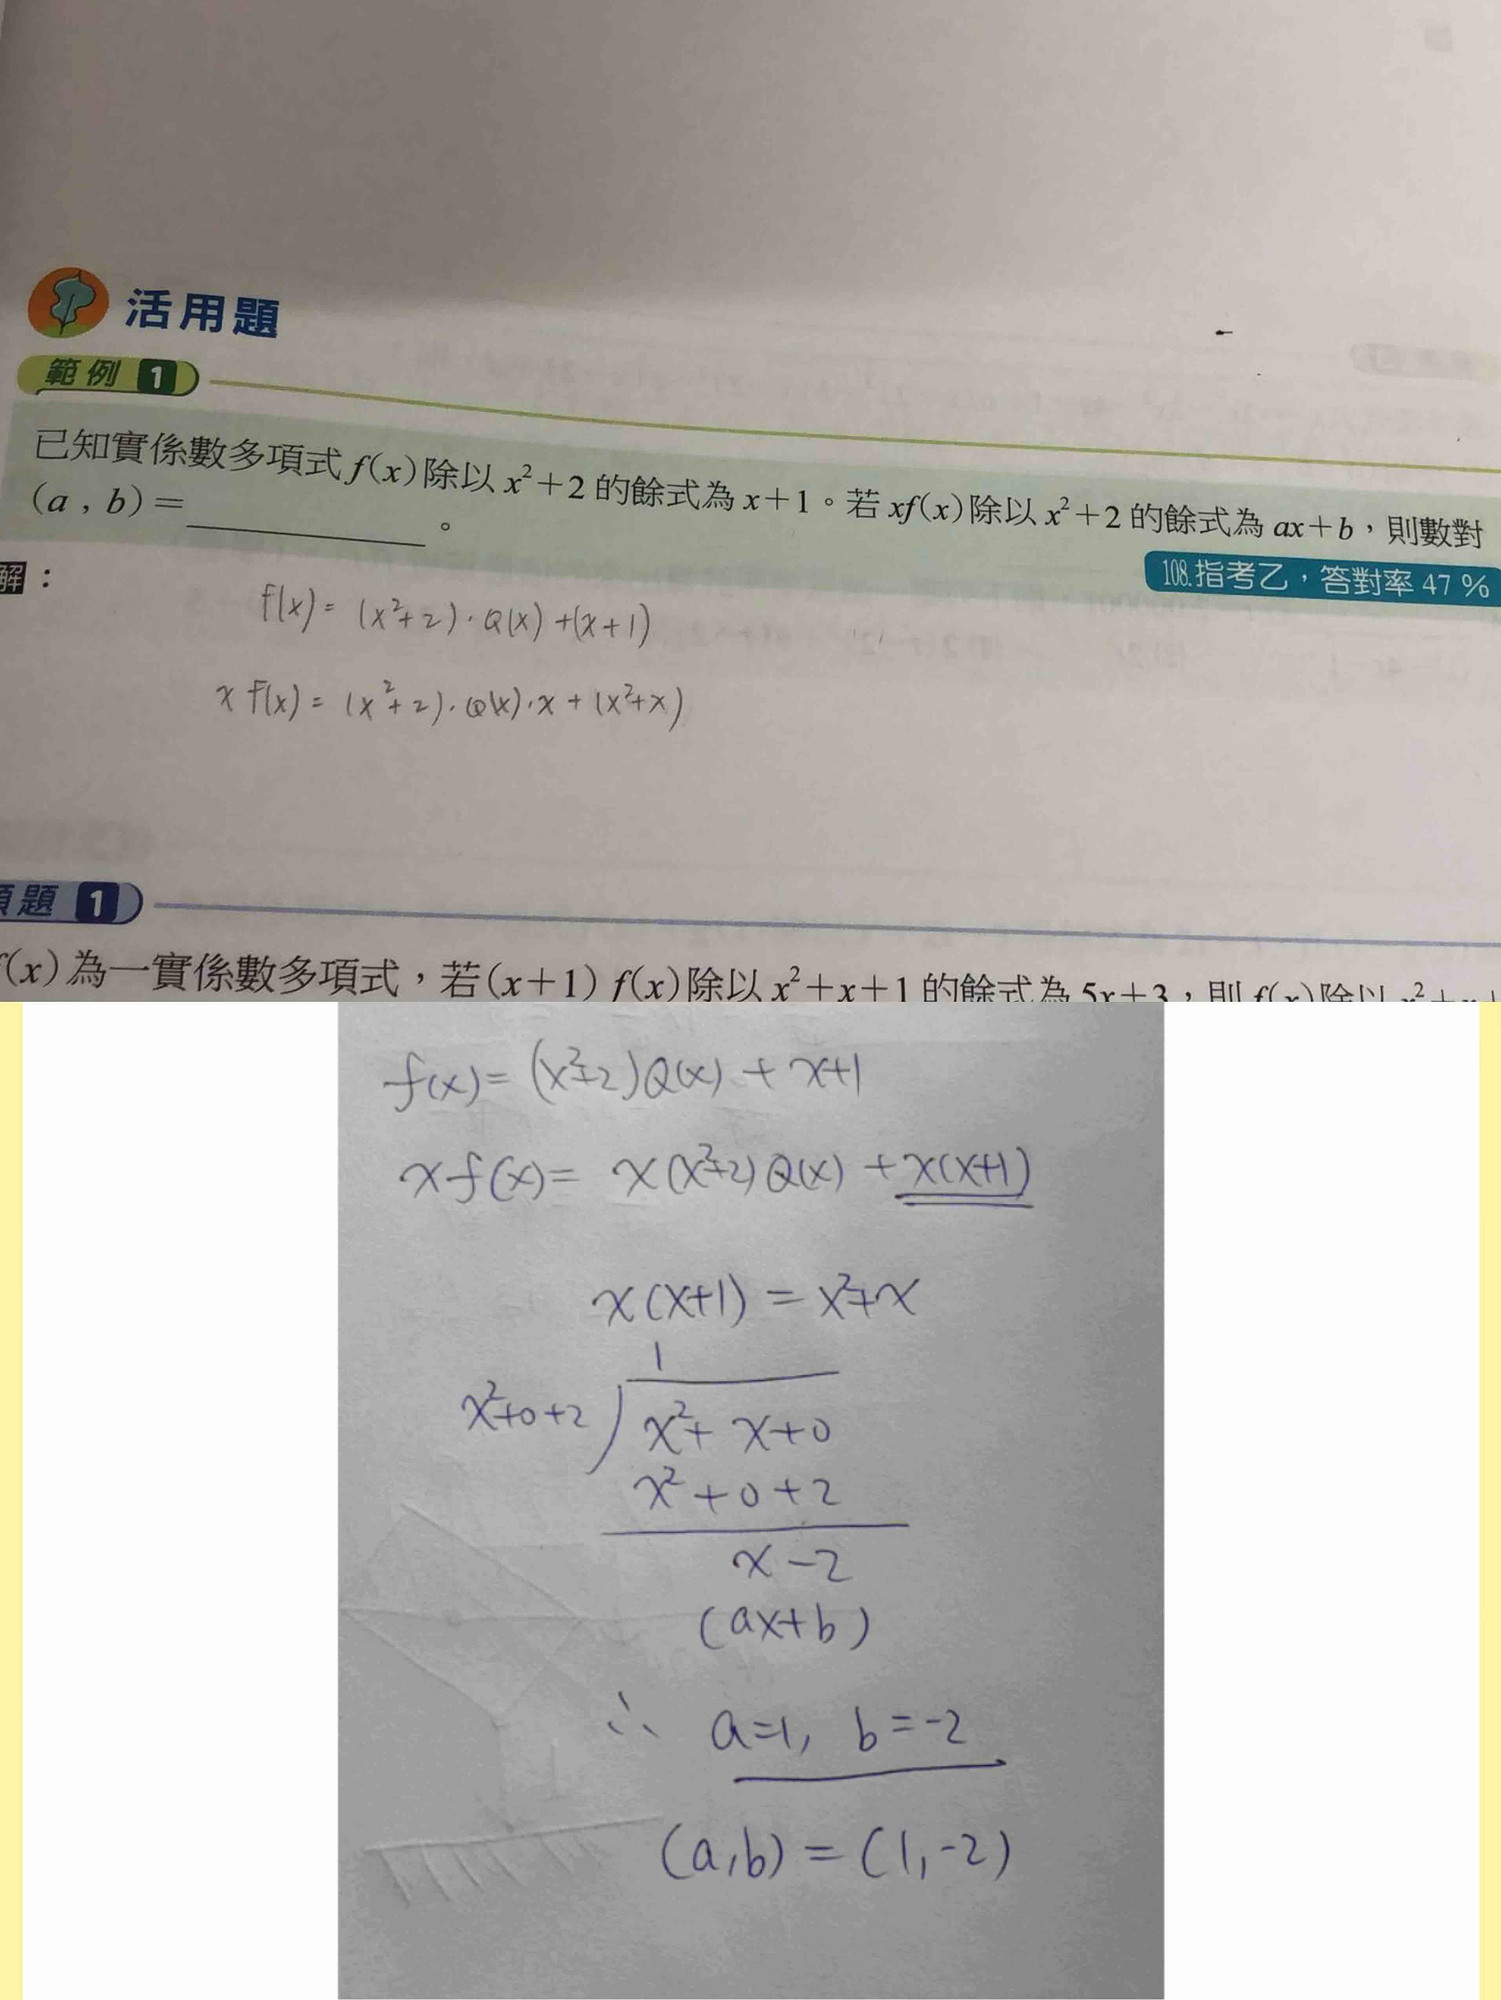 活用題
範例 1
已知實係數多項式 f(x) 除以 x²+2 的餘式為 x+1。若 xf(x) 除以 x²+2 的餘式為 ax+b,則數對
(a , b)=________。
108.指考乙,答對率 47 %
解:
f(x)= (x²+2)·Q(x)+(x+1)
x f(x)= (x²+2)·Q(x)·x+(x²+x)
題 1
f(x) 為一實係數多項式,若 (x+1) f(x) 除以 x²+x+1 的餘式為 5x+3,則 f(x) 除以
f(x)= (x²+2)Q(x) + x+1
xf(x)= x(x²+2)Q(x) + x(x+1)
x(x+1) = x²+x
1
x²+0+2 ) x²+ x+0
x²+0+2
x-2
(ax+b)
∴ a=1, b=-2
(a,b) = (1,-2)